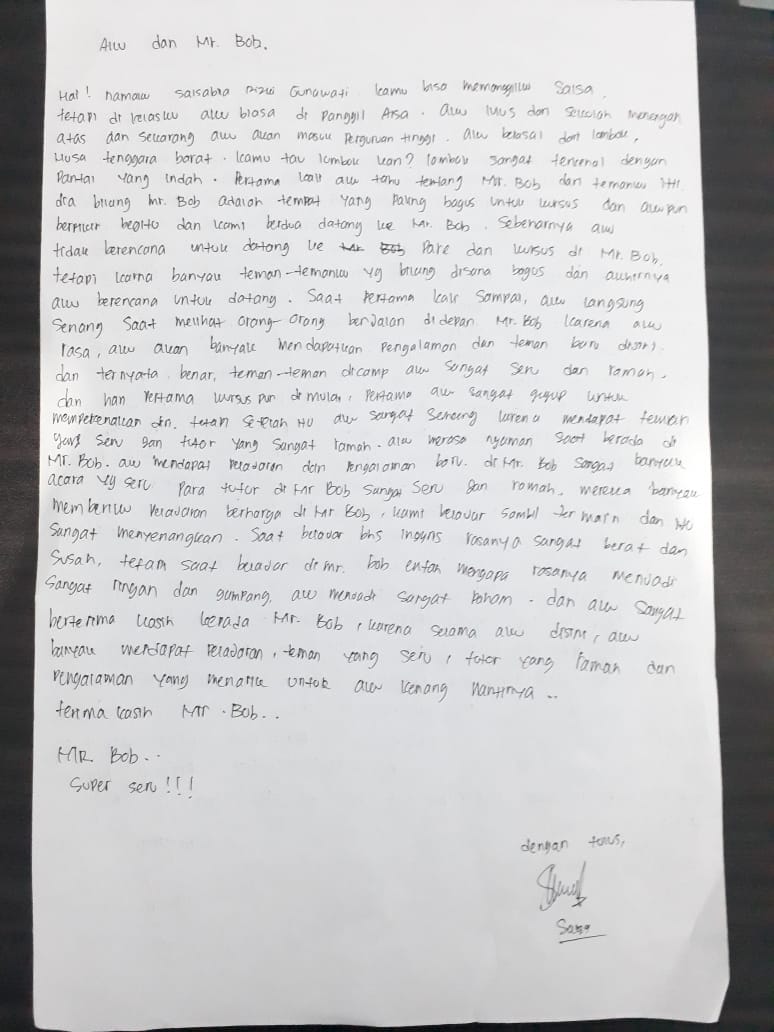 Aku dan Mr. Bob.
Hai! namaku salsabila Rizki Gunawati kamu bisa memanggilku Salsa.
tetapi di kelasku aku biasa di panggil Arsa. aku lulus dari Sekolah menengah
atas dan sekarang aku akan masuk Perguruan tinggi. aku berasal dari lombok,
Nusa tenggara barat. kamu tau lombok kan? lombok sangat terkenal dengan
Pantai yang indah. Pertama kali aku tahu tentang Mr. Bob dari temanku
dia bilang Mr. Bob adalah tempat yang Paling bagus untuk kursus dan akupun
berpikir begitu dan kami berdua datang ke Mr. Bob. Sebenarnya aku
tidak berencana untuk datang ke Mr Bob Pare dan kursus di Mr. Bob,
tetapi karna banyak teman-temanku yg bilang disana bagus dan akhirnya
aku berencana untuk datang. Saat Pertama kali Sampai, aku langsung
Senang Saat melihat orang-orang berjalan didepan Mr. Bob karena aku
rasa, aku akan banyak mendapatkan Pengalaman dan teman baru disini
dan ternyata benar, teman-teman dicamp aku sangat Seru dan ramah.
dan hari Pertama kursus pun di mulai, Pertama aku sangat gugup untuk
memperkenalkan diri. tetapi Setelah itu aku sangat Senang karena mendapat teman
yang seru dan tutor yang Sangat ramah. aku merasa nyaman saat berada di
Mr. Bob. aku mendapat Pelajaran dan Pengalaman baru. di Mr. Bob Sangat banyak
acara yg seru Para tutor di Mr Bob Sangat Seru dan ramah, mereka banyak
memberiku Pelajaran berharga di Mr Bob, kami belajar sambil bermain dan itu
Sangat menyenangkan. Saat belajar bhs inggris rasanya sangat berat dan
Susah, tetapi saat belajar di mr. bob entah mengapa rasanya menjadi
Sangat ringan dan gampang, aku menjadi sangat Paham. dan aku Sangat
berterima kasih kepada Mr. Bob, karena selama aku disini, aku
banyak mendapat Pelajaran, teman yang seru, tutor yang ramah dan
Pengalaman yang menarik untuk aku kenang nantinya..
terima kasih Mr. Bob..
MR. Bob..
Super seru!!!
dengan tulus,
Salsa